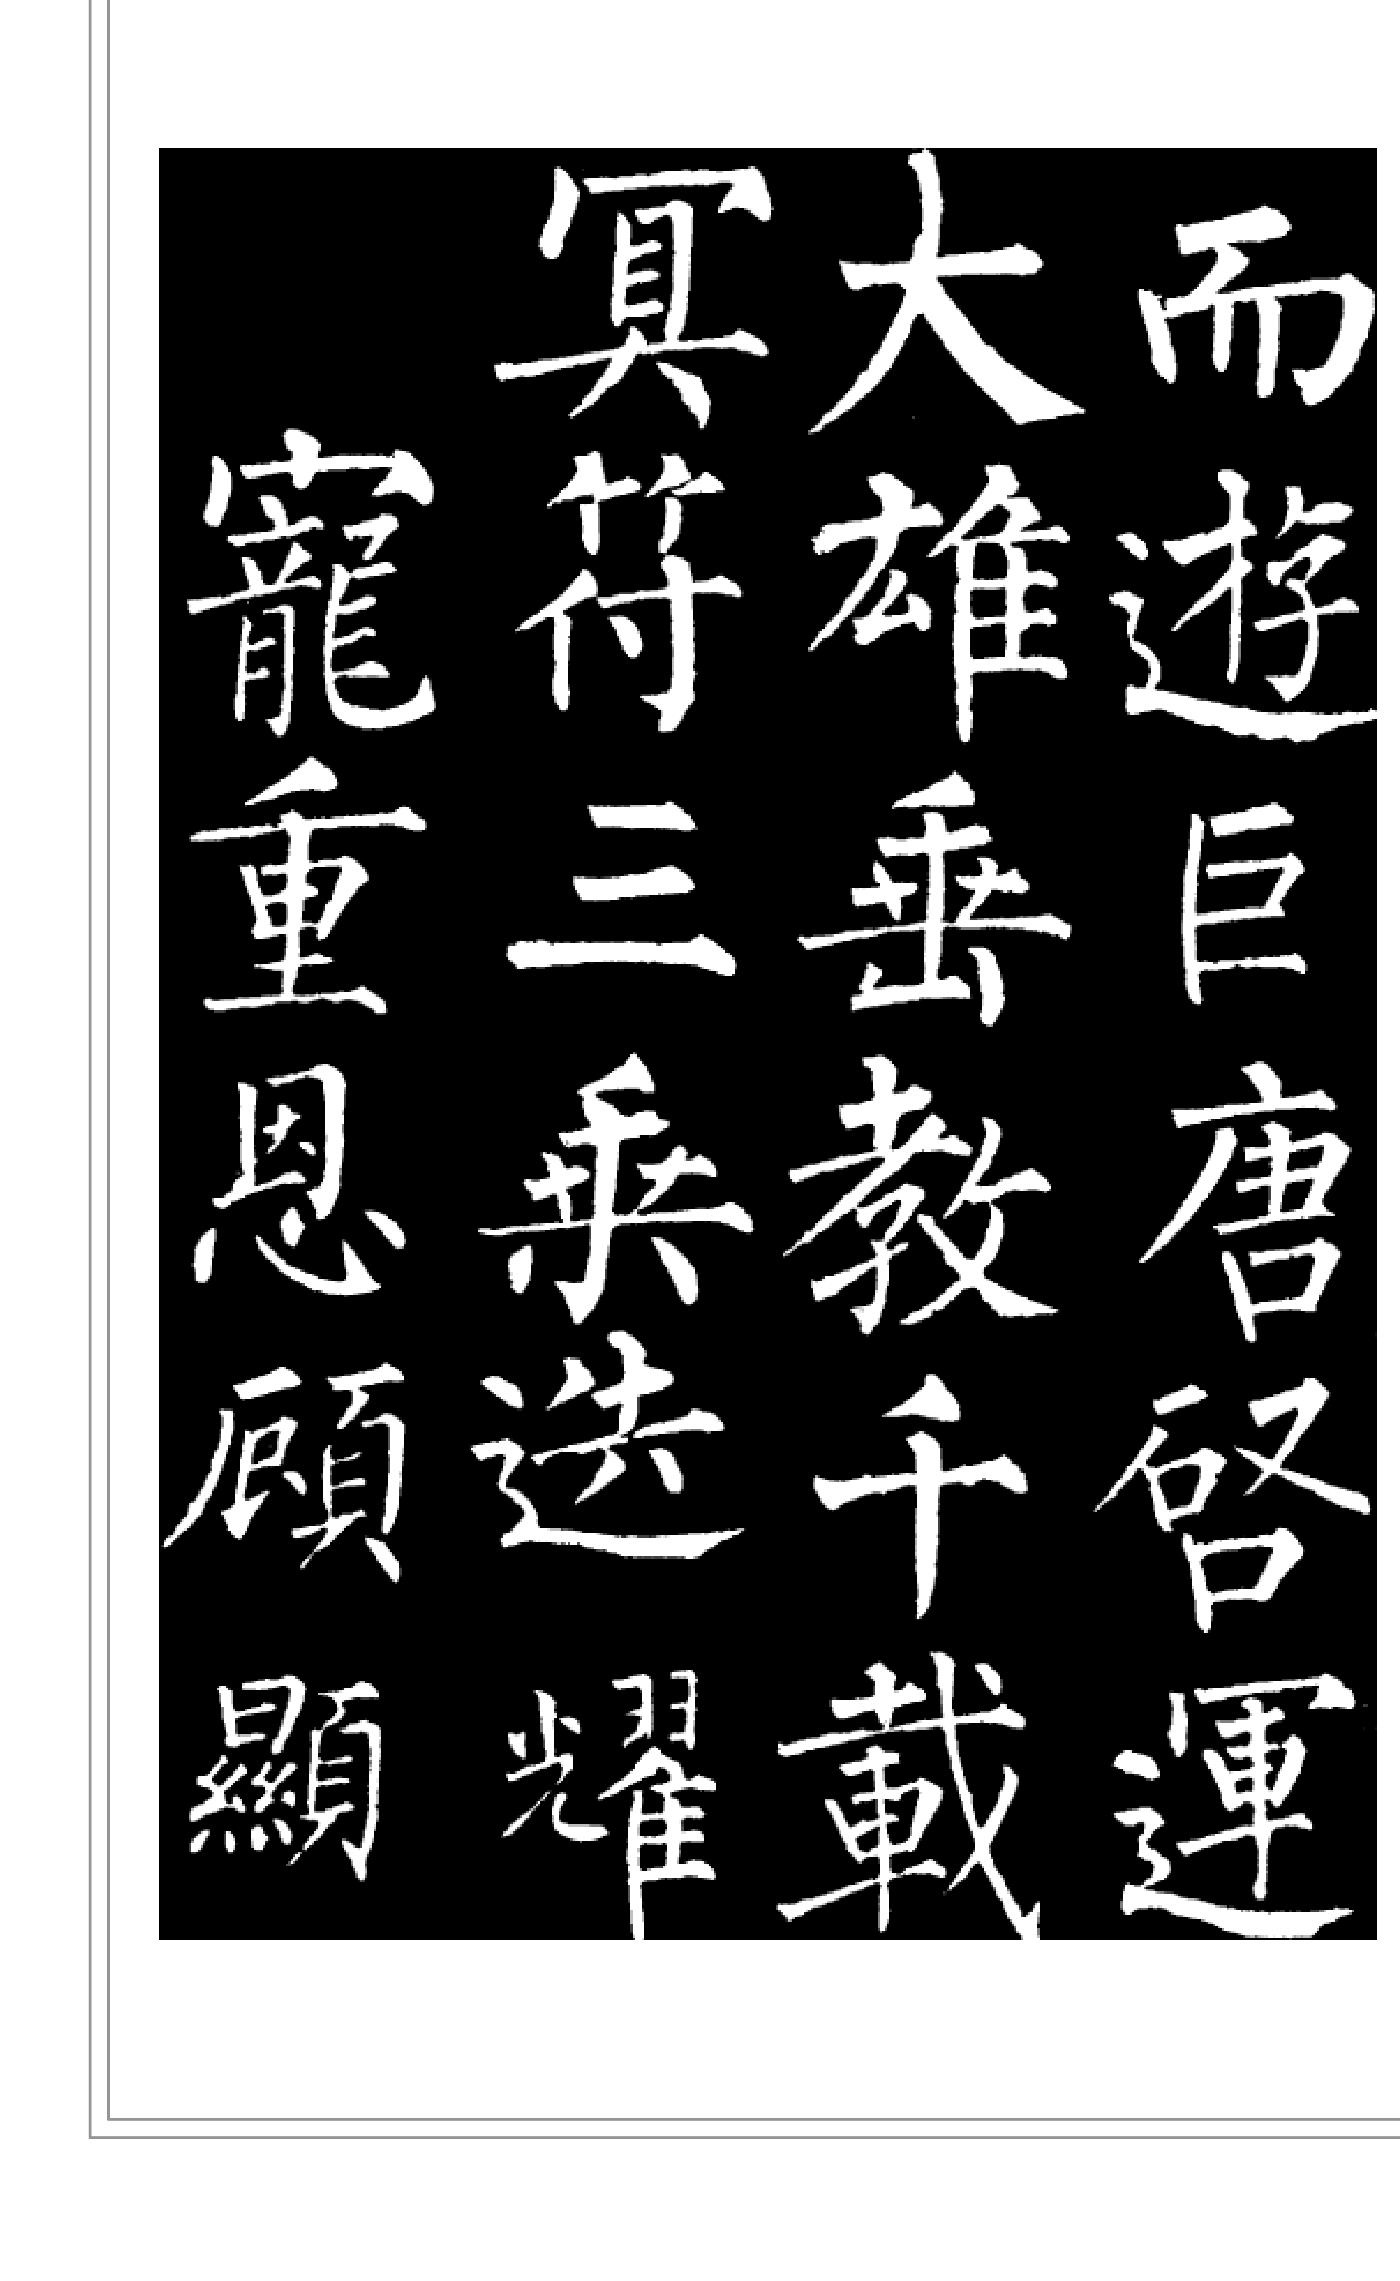 而遊巨唐啓運
大雄垂教千載
冥符三乗迭耀
寵重恩顧顯